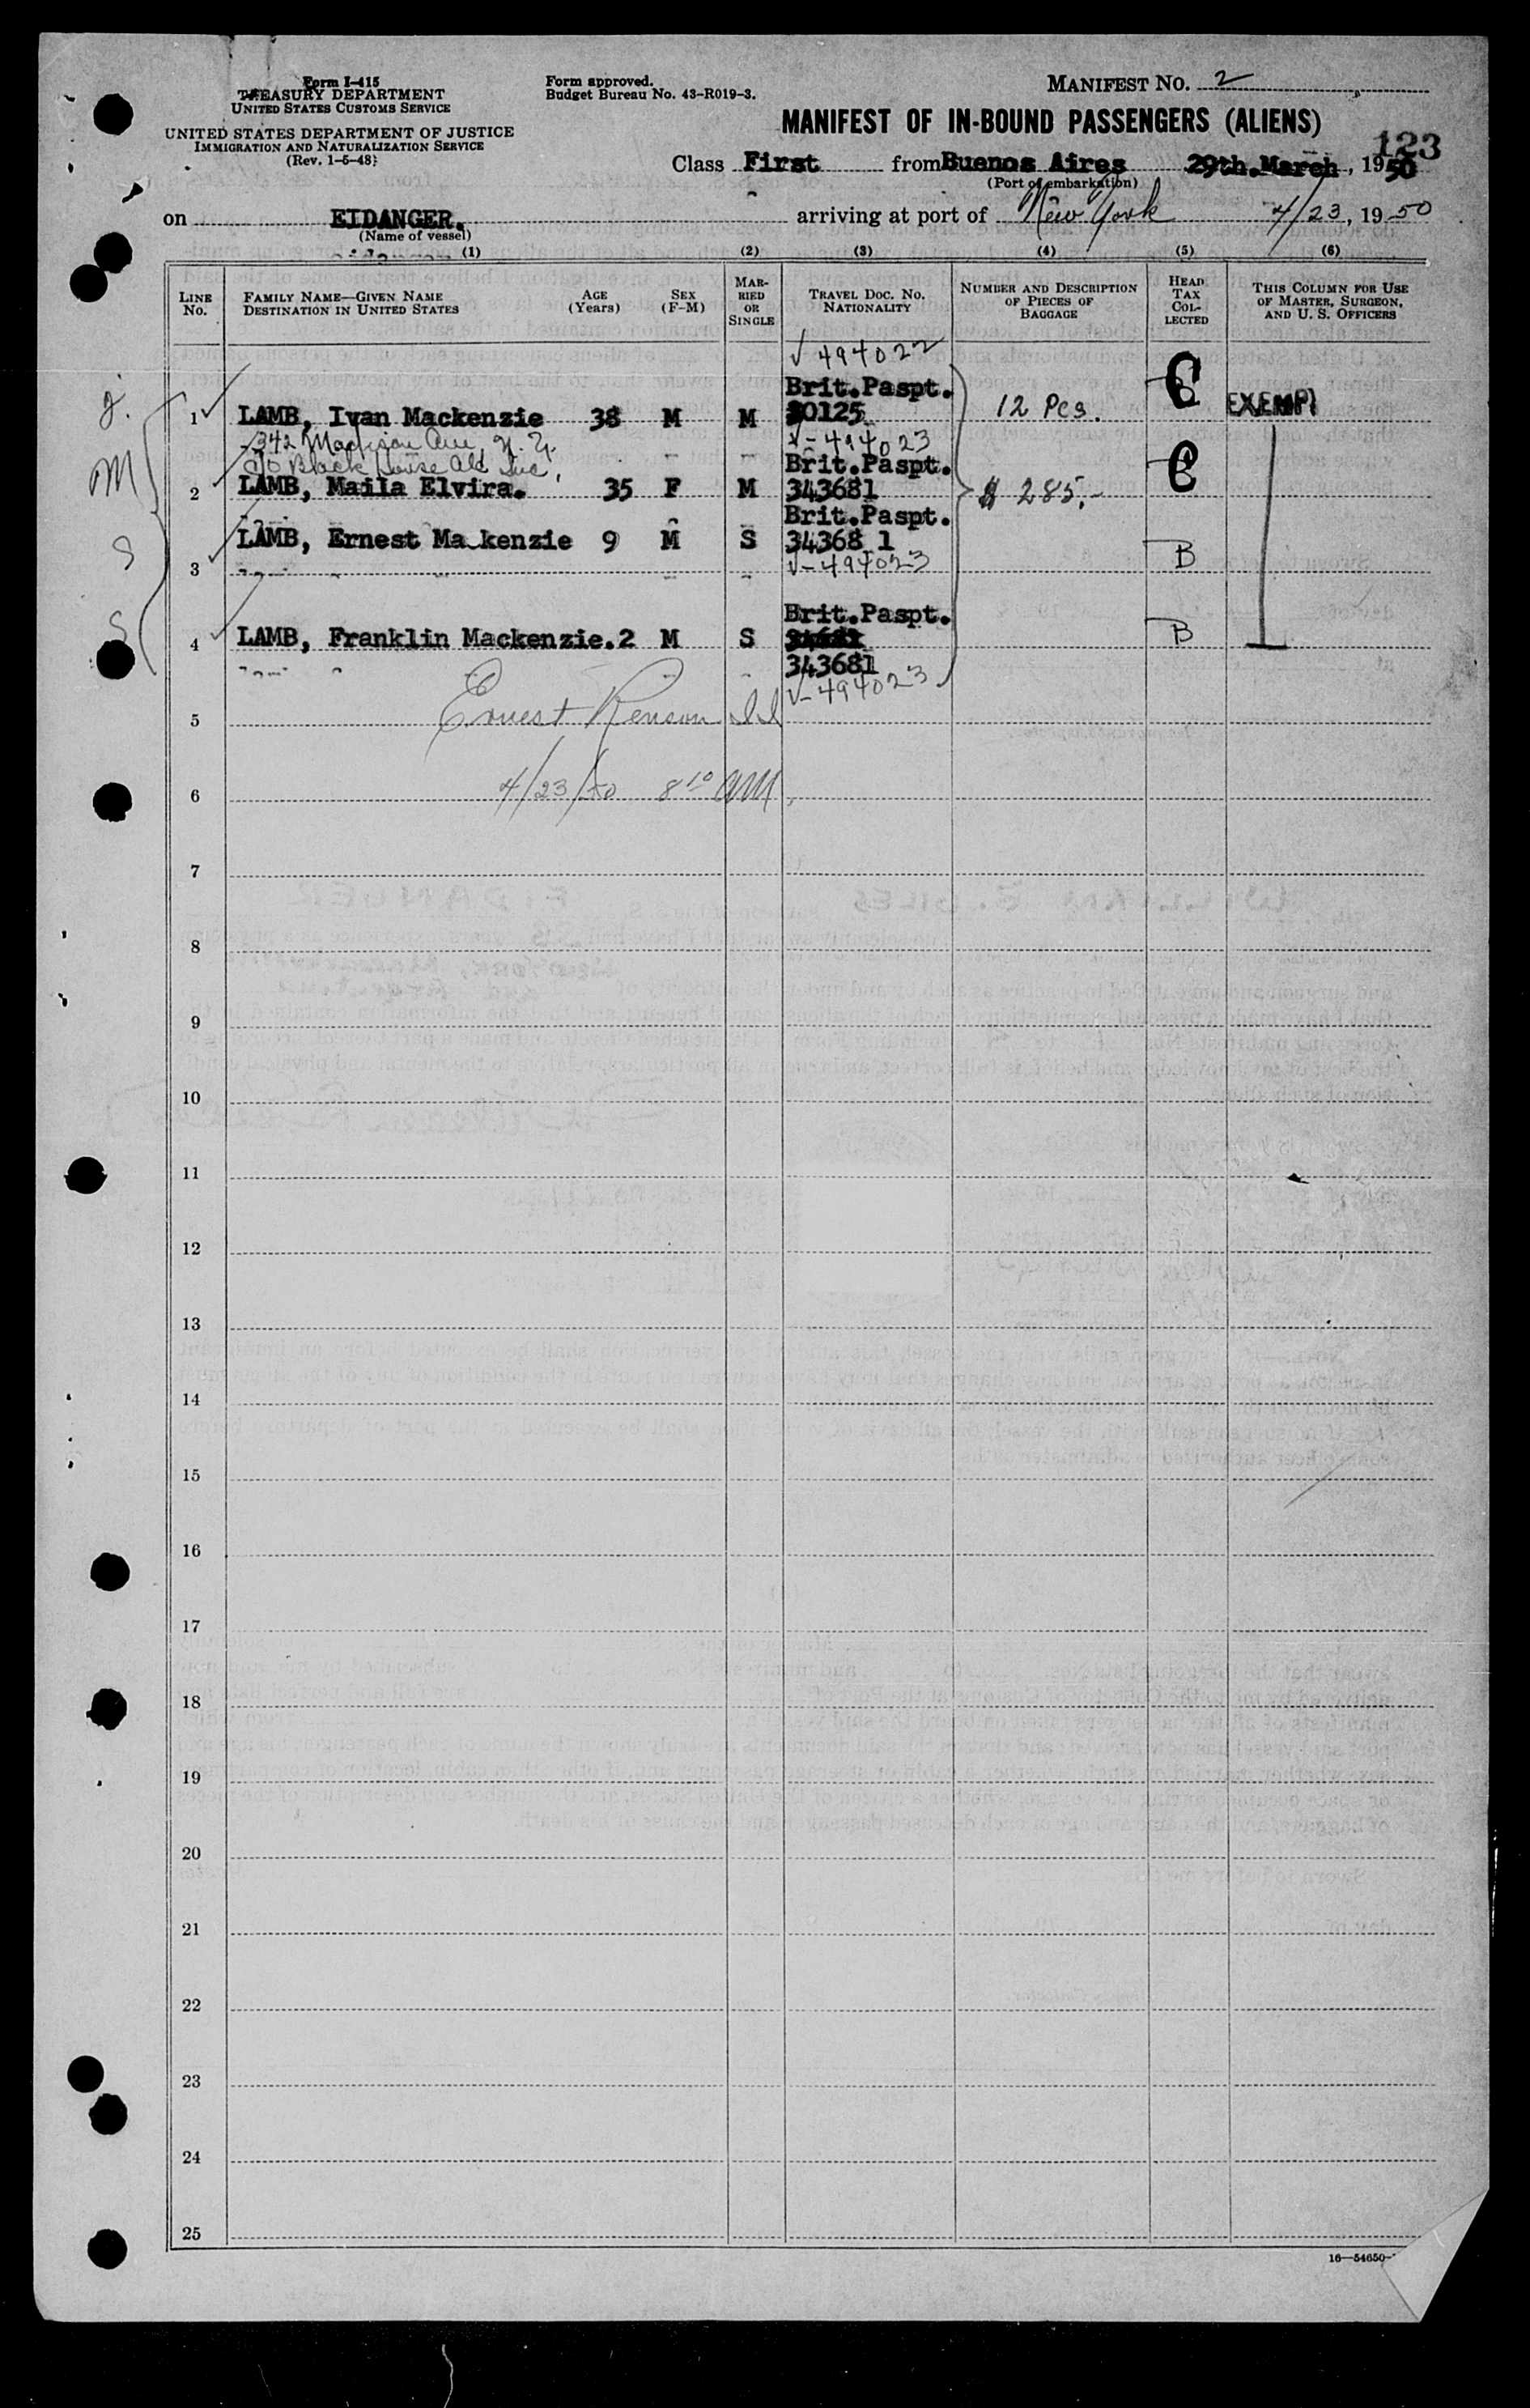 Form I-415
TREASURY DEPARTMENT
UNITED STATES CUSTOMS SERVICE
UNITED STATES DEPARTMENT OF JUSTICE
IMMIGRATION AND NATURALIZATION SERVICE
(Rev. 1-5-48)
Form approved.
Budget Bureau No. 43-R019-3.
MANIFEST NO. 2
MANIFEST OF IN-BOUND PASSENGERS (ALIENS)
123
Class First from Buenos Aires 29th.March, 1950
(Port of embarkation)
on EIDANGER. arriving at port of New York 4/23, 1950
(Name of vessel)
(1) (2) (3) (4) (5) (6)
LINE No. FAMILY NAME—GIVEN NAME DESTINATION IN UNITED STATES AGE (Years) SEX (F-M) MARRIED OR SINGLE TRAVEL DOC. NO. NATIONALITY NUMBER AND DESCRIPTION OF PIECES OF BAGGAGE HEAD TAX COLLECTED THIS COLUMN FOR USE OF MASTER, SURGEON, AND U. S. OFFICERS
V 494022
Brit.Paspt.
1 LAMB, Ivan Mackenzie 38 M M 30125 12 Pcs. C EXEMPT
342 Madison Ave, N.Y. V-494023
c/o Black Inc. Brit.Paspt.
2 LAMB, Maila Elvira. 35 F M 343681 $ 285.- C
Brit.Paspt.
LAMB, Ernest Ma kenzie 9 M S 34368 1 B
3 V-494023
Brit.Paspt.
4 LAMB, Franklin Mackenzie. 2 M S B
343681
V-494023
M
S
S
5 Ernest Renson
6 4/23/50 8 10 AM
7
8
9
10
11
12
13
14
15
16
17
18
19
20
21
22
23
24
25
16—54650-